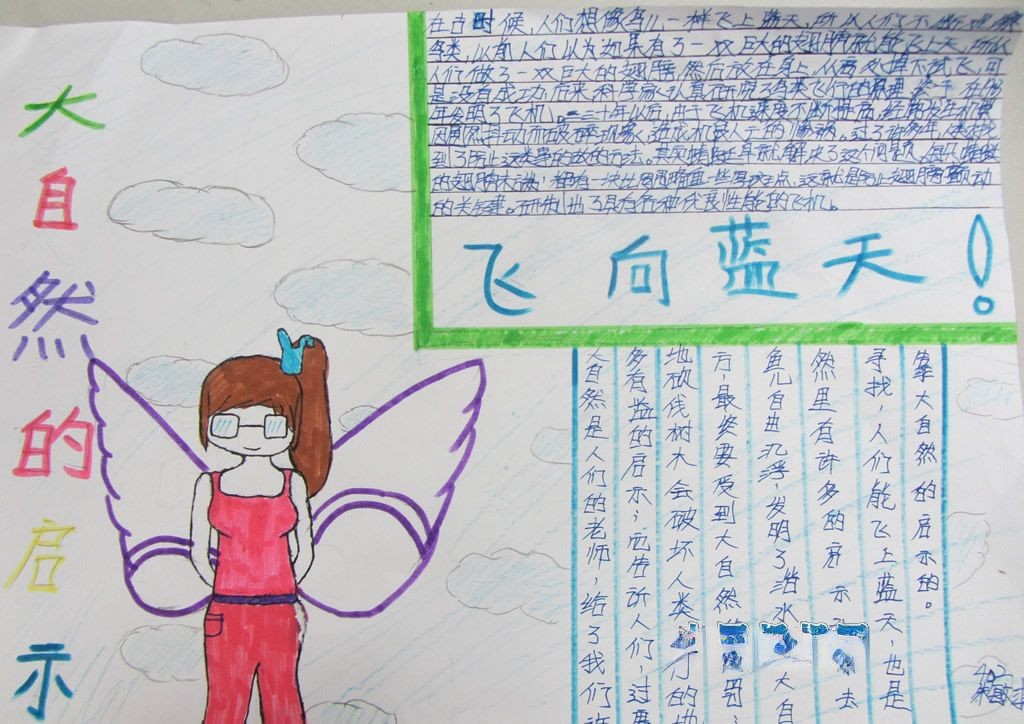 大自然的启示
在古时候,人们想像鸟儿一样飞上蓝天,所以人们不断观察
鸟类,以前人们以为如果有了一双巨大的翅膀就能飞上天,所以
人们做了一双巨大的翅膀,然后放在身上,从高处掉下试飞,可
是没有成功,后来,科学家认真研究了鸟类飞行的原理 终于在
年发明了飞机。二三十年以后,由于飞机速度不断提高,经常发生机翼
因剧烈抖动而破碎现象,造成机毁人亡的惨祸。过了许多年,人们才找
到了防止这类事故的方法。其实蜻蜓早就解决了这个问题。每只蜻蜓
的翅膀末端,都有一块比周围略重一些厚斑点,这就是防止翅膀颤动
的关键。研制出了具有各种优良性能的飞机。
飞向蓝天!
大自然是人们的老师,给了我们许
多有益的启示;它告诉人们,过度
地砍伐树木会破坏人类 的地
方,最终要受到大自然的 罚;
鱼儿自由沉浮,发明了潜水 大自
然里有许多的启示 去
寻找,人们能飞上蓝天,也是
靠大自然的启示的。